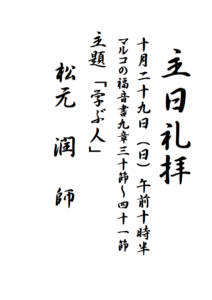 主日礼拝
十月二十九日（日）午前十時半
マルコの福音書九章三十節～四十一節
主題「学ぶ人」
松元　潤　師